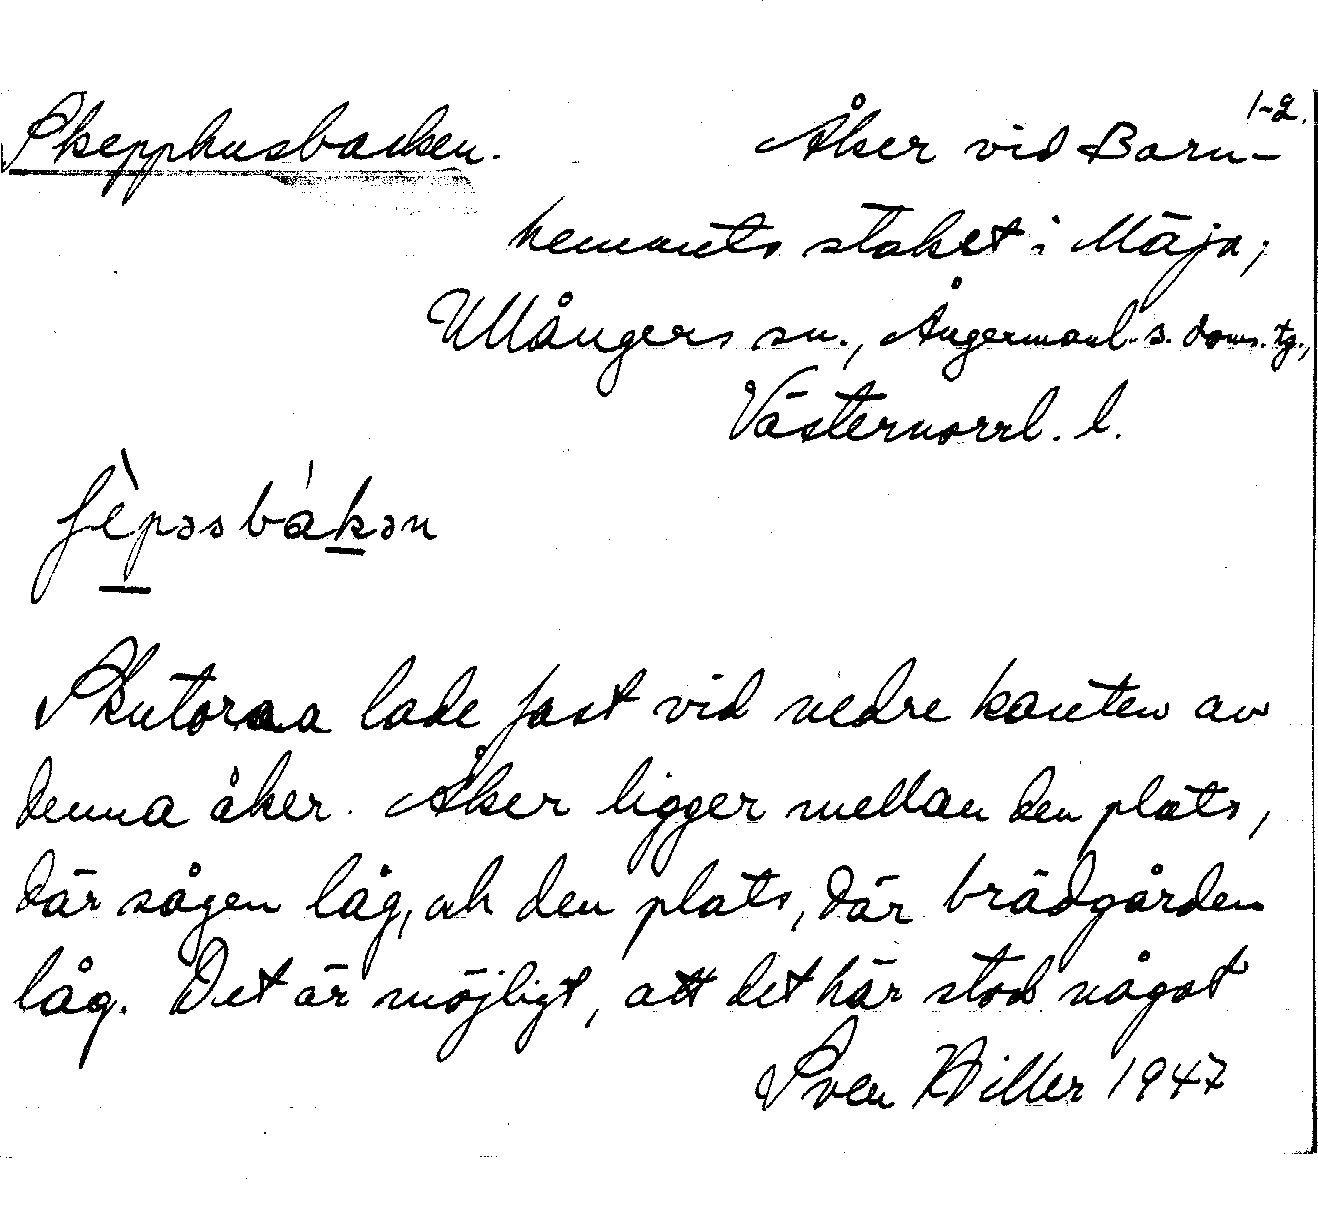 1-2.
Skepphusbacken. Åker vid Barn-
hemmets staket i Mäja,
Ullångers sn., Ångermanl. s. doms. tg.,
Västernorrl. l.
ʃèpəsbákən
Skutorna lade fast vid nedre kanten av
denna åker. Åker ligger mellan den plats,
där sågen låg, och den plats, där brädgården
låg. Det är möjligt, att det här stod något
Sven Hiller 1947